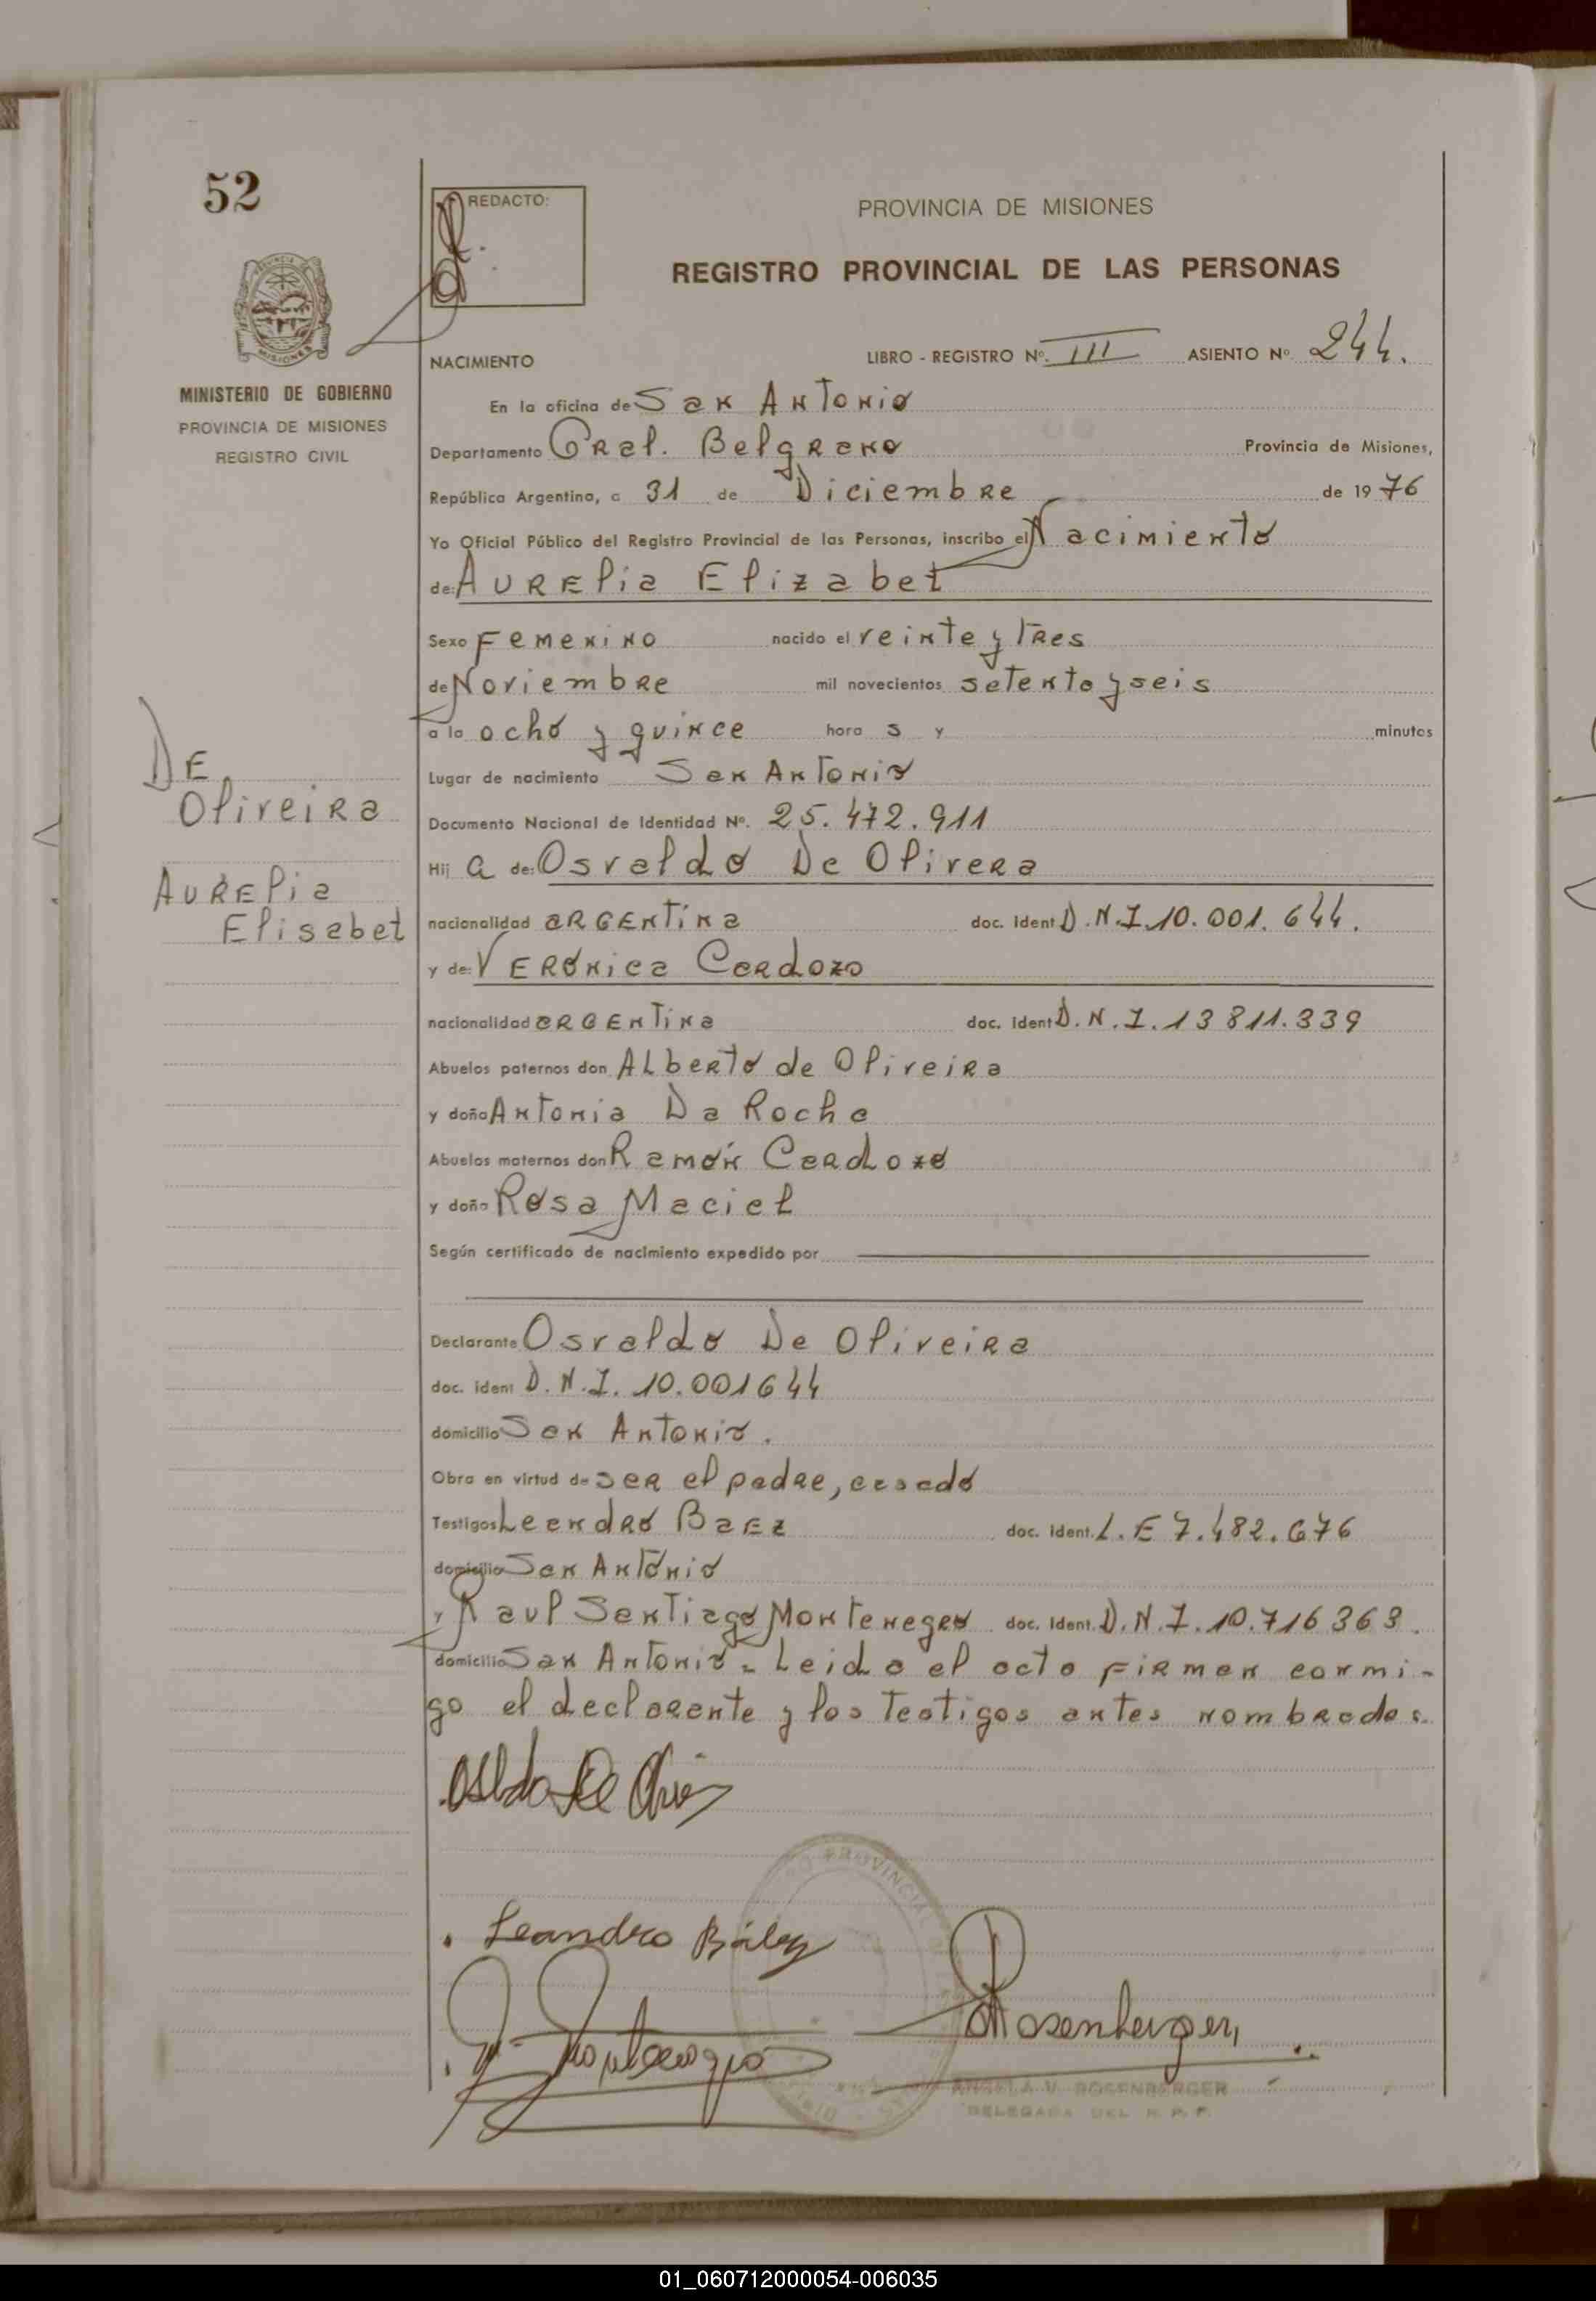 52
REDACTO:
PROVINCIA DE MISIONES
REGISTRO PROVINCIAL DE LAS PERSONAS
MINISTERIO DE GOBIERNO
PROVINCIA DE MISIONES
REGISTRO CIVIL
NACIMIENTO LIBRO - REGISTRO Nº. III ASIENTO Nº 244.
En la oficina de San Antonio
Departamento Gral. Belgrano Provincia de Misiones,
República Argentina, a 31 de Diciembre de 1976
Yo Oficial Público del Registro Provincial de las Personas, inscribo el Nacimiento
de: Aurelia Elizabet
Sexo Femenino nacido el veinte y tres
de Noviembre mil novecientos setenta y seis
a la ocho y quince hora s y minutos
Lugar de nacimiento San Antonio
Documento Nacional de Identidad Nº. 25.472.911
Hij a de: Osvaldo De Olivera
nacionalidad argentina doc. ident D.N.I. 10.001.644.
y de: Verónica Cardozo
nacionalidad argentina doc. ident D.N.I. 13811.339
Abuelos paternos don Alberto de Oliveira
y doña Antonia Da Rocha
Abuelos maternos don Ramón Cardozo
y doña Rosa Maciel
Según certificado de nacimiento expedido por
Declarante Osvaldo De Oliveira
doc. ident D.N.I. 10.001644
domicilio San Antonio.
Obra en virtud de ser el padre, casado
Testigos Leandro Baez doc. ident. L.E 7.482.676
domicilio San Antonio
y Raul Santiago Montenegro doc. ident. D.N.I. 10.716363.
domicilio San Antonio - Leida el acta firman conmi-
go el declarante y los testigos antes nombrados.
De
Oliveira
Aurelia
Elisabet
Leandro Báez
Rosenberger
ANGELA V. ROSENBERGER
DELEGADA DEL R. P. P.
01_060712000054-006035